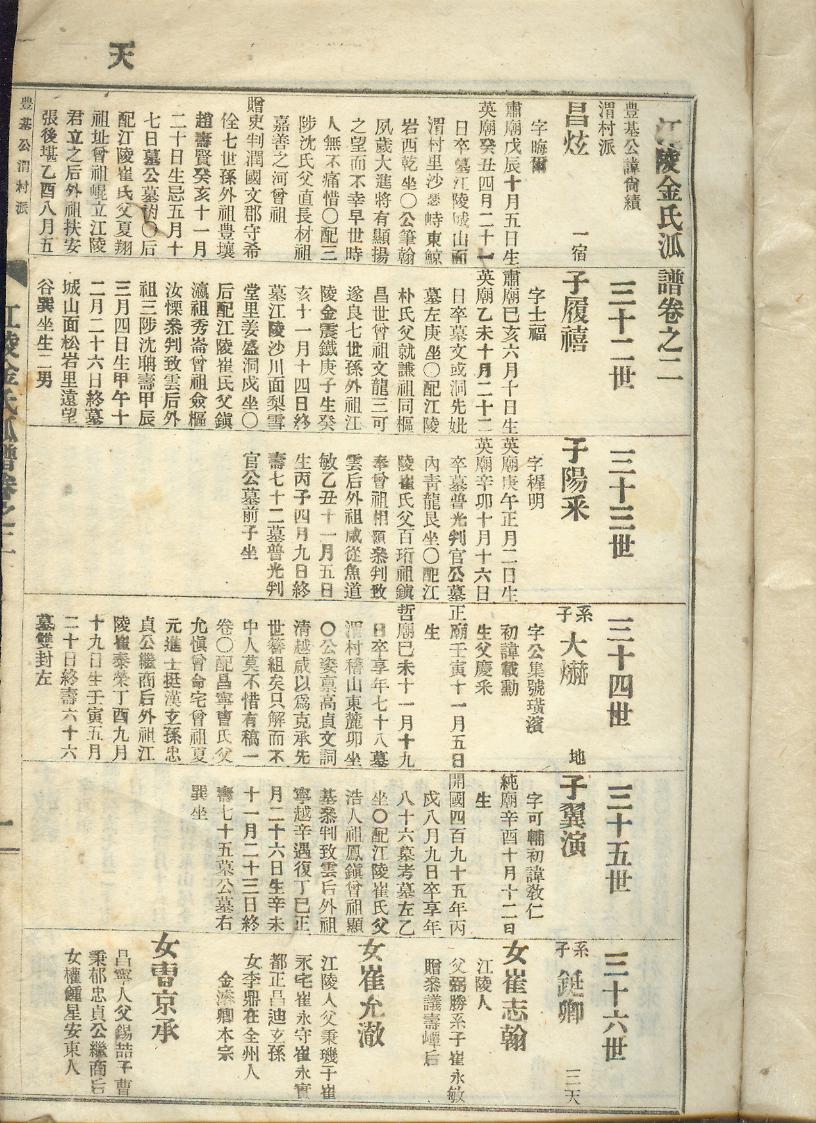 天
江陵金氏派譜卷之二
豊基公諱尙績
渭村派
昌炫
一宿
字晦爾
肅廟戊辰十月五日生
英廟癸丑四月二十一
日卒墓江陵城山面
渭村里沙器峙東鯨
岩西乾坐〇公筆翰
夙歲大進將有顯揚
之望而不幸早世時
人無不痛惜〇配三
陟沈氏父直長材祖
嘉善之河曾祖
贈吏判潤國文郡守希
佺七世孫外祖豊壤
趙壽賢癸亥十一月
二十日生忌五月十
七日墓公墓 〇后
配江陵崔氏父夏翔
祖址曾祖崐立江陵
君立之后外祖扶安
張後堪乙酉八月五
三十二世
子履禧
字士福
肅廟己亥六月十日生
英廟乙未十月二十二
日卒墓文或洞先妣
墓左庚坐〇配江陵
朴氏父就謙祖同樞
昌世曾祖文龍三可
遂良七世孫外祖江
陵金震鐵庚子生癸
亥十一月十四日終
墓江陵沙川面梨雪
堂里姜盛洞戌坐〇
后配江陵崔氏父鎭
瀛祖秀崙曾祖僉樞
汝慄叅判致雲后外
祖三陟沈聃壽甲辰
三月四日生甲午十
二月二十六日終墓
城山面松岩里遠望
谷巽坐生二男
三十三世
子陽采
字穉明
英廟庚午正月二日生
英廟辛卯十月十六日
卒墓普光判官公墓
內靑龍艮坐〇配江
陵崔氏父百珩祖鎭
奉曾祖相顥叅判致
雲后外祖咸從魚道
敏乙丑十一月五日
生丙子四月九日終
壽七十二墓普光判
官公墓前子坐
三十四世
系子大爀
地
字公集號璜濱
初諱載勳
生父慶采
正廟壬寅十一月五日
生
哲廟己未十一月十九
日卒享年七十八墓
渭村稽山東麓卯坐
〇公姿稟高貞文詞
淸越咸以爲克承先
世簪組矣只解而不
中人莫不惜有稿一
卷〇配昌寧曺氏父
允愼曾命宅曾祖夏
元進士挺漢玄孫忠
貞公繼商后外祖江
陵崔泰榮丁酉九月
十九日生壬寅五月
二十日終壽六十六
墓雙封左
三十五世
子翼演
字可輔初諱敎仁
純廟辛酉十月十二日
生
開國四百九十五年丙
戌八月九日卒享年
八十六墓考墓左乙
坐〇配江陵崔氏父
浩人祖鳳鎭曾祖顯
基叅判致雲后外祖
寧越辛遇復丁巳正
月二十六日生辛未
十一月二十三日終
壽七十五墓公墓右
巽坐
三十六世
系子鋋卿
三天
女崔志翰
江陵人
父弼勝系子崔永敏
贈叅議壽嶂后
女崔允澈
江陵人父秉璣子崔
永宅崔永守崔永實
都正昌迪玄孫
女李鼎在全州人
金濂卿本宗
女曺京承
昌寧人父錫喆子曺
秉郁忠貞公繼商后
女權鍾星安東人
豊基公渭村派
江陵金氏派譜卷之二
一